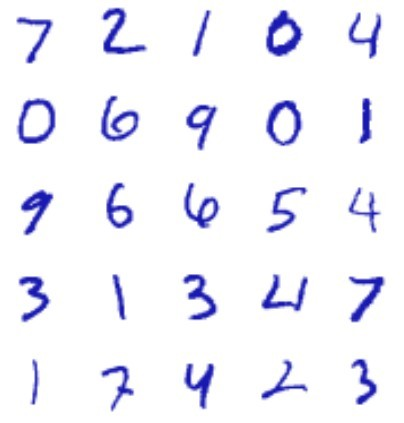 7 2 1 0 4
0 6 9 0 1
9 6 6 5 4
3 1 3 4 7
1 7 4 2 3